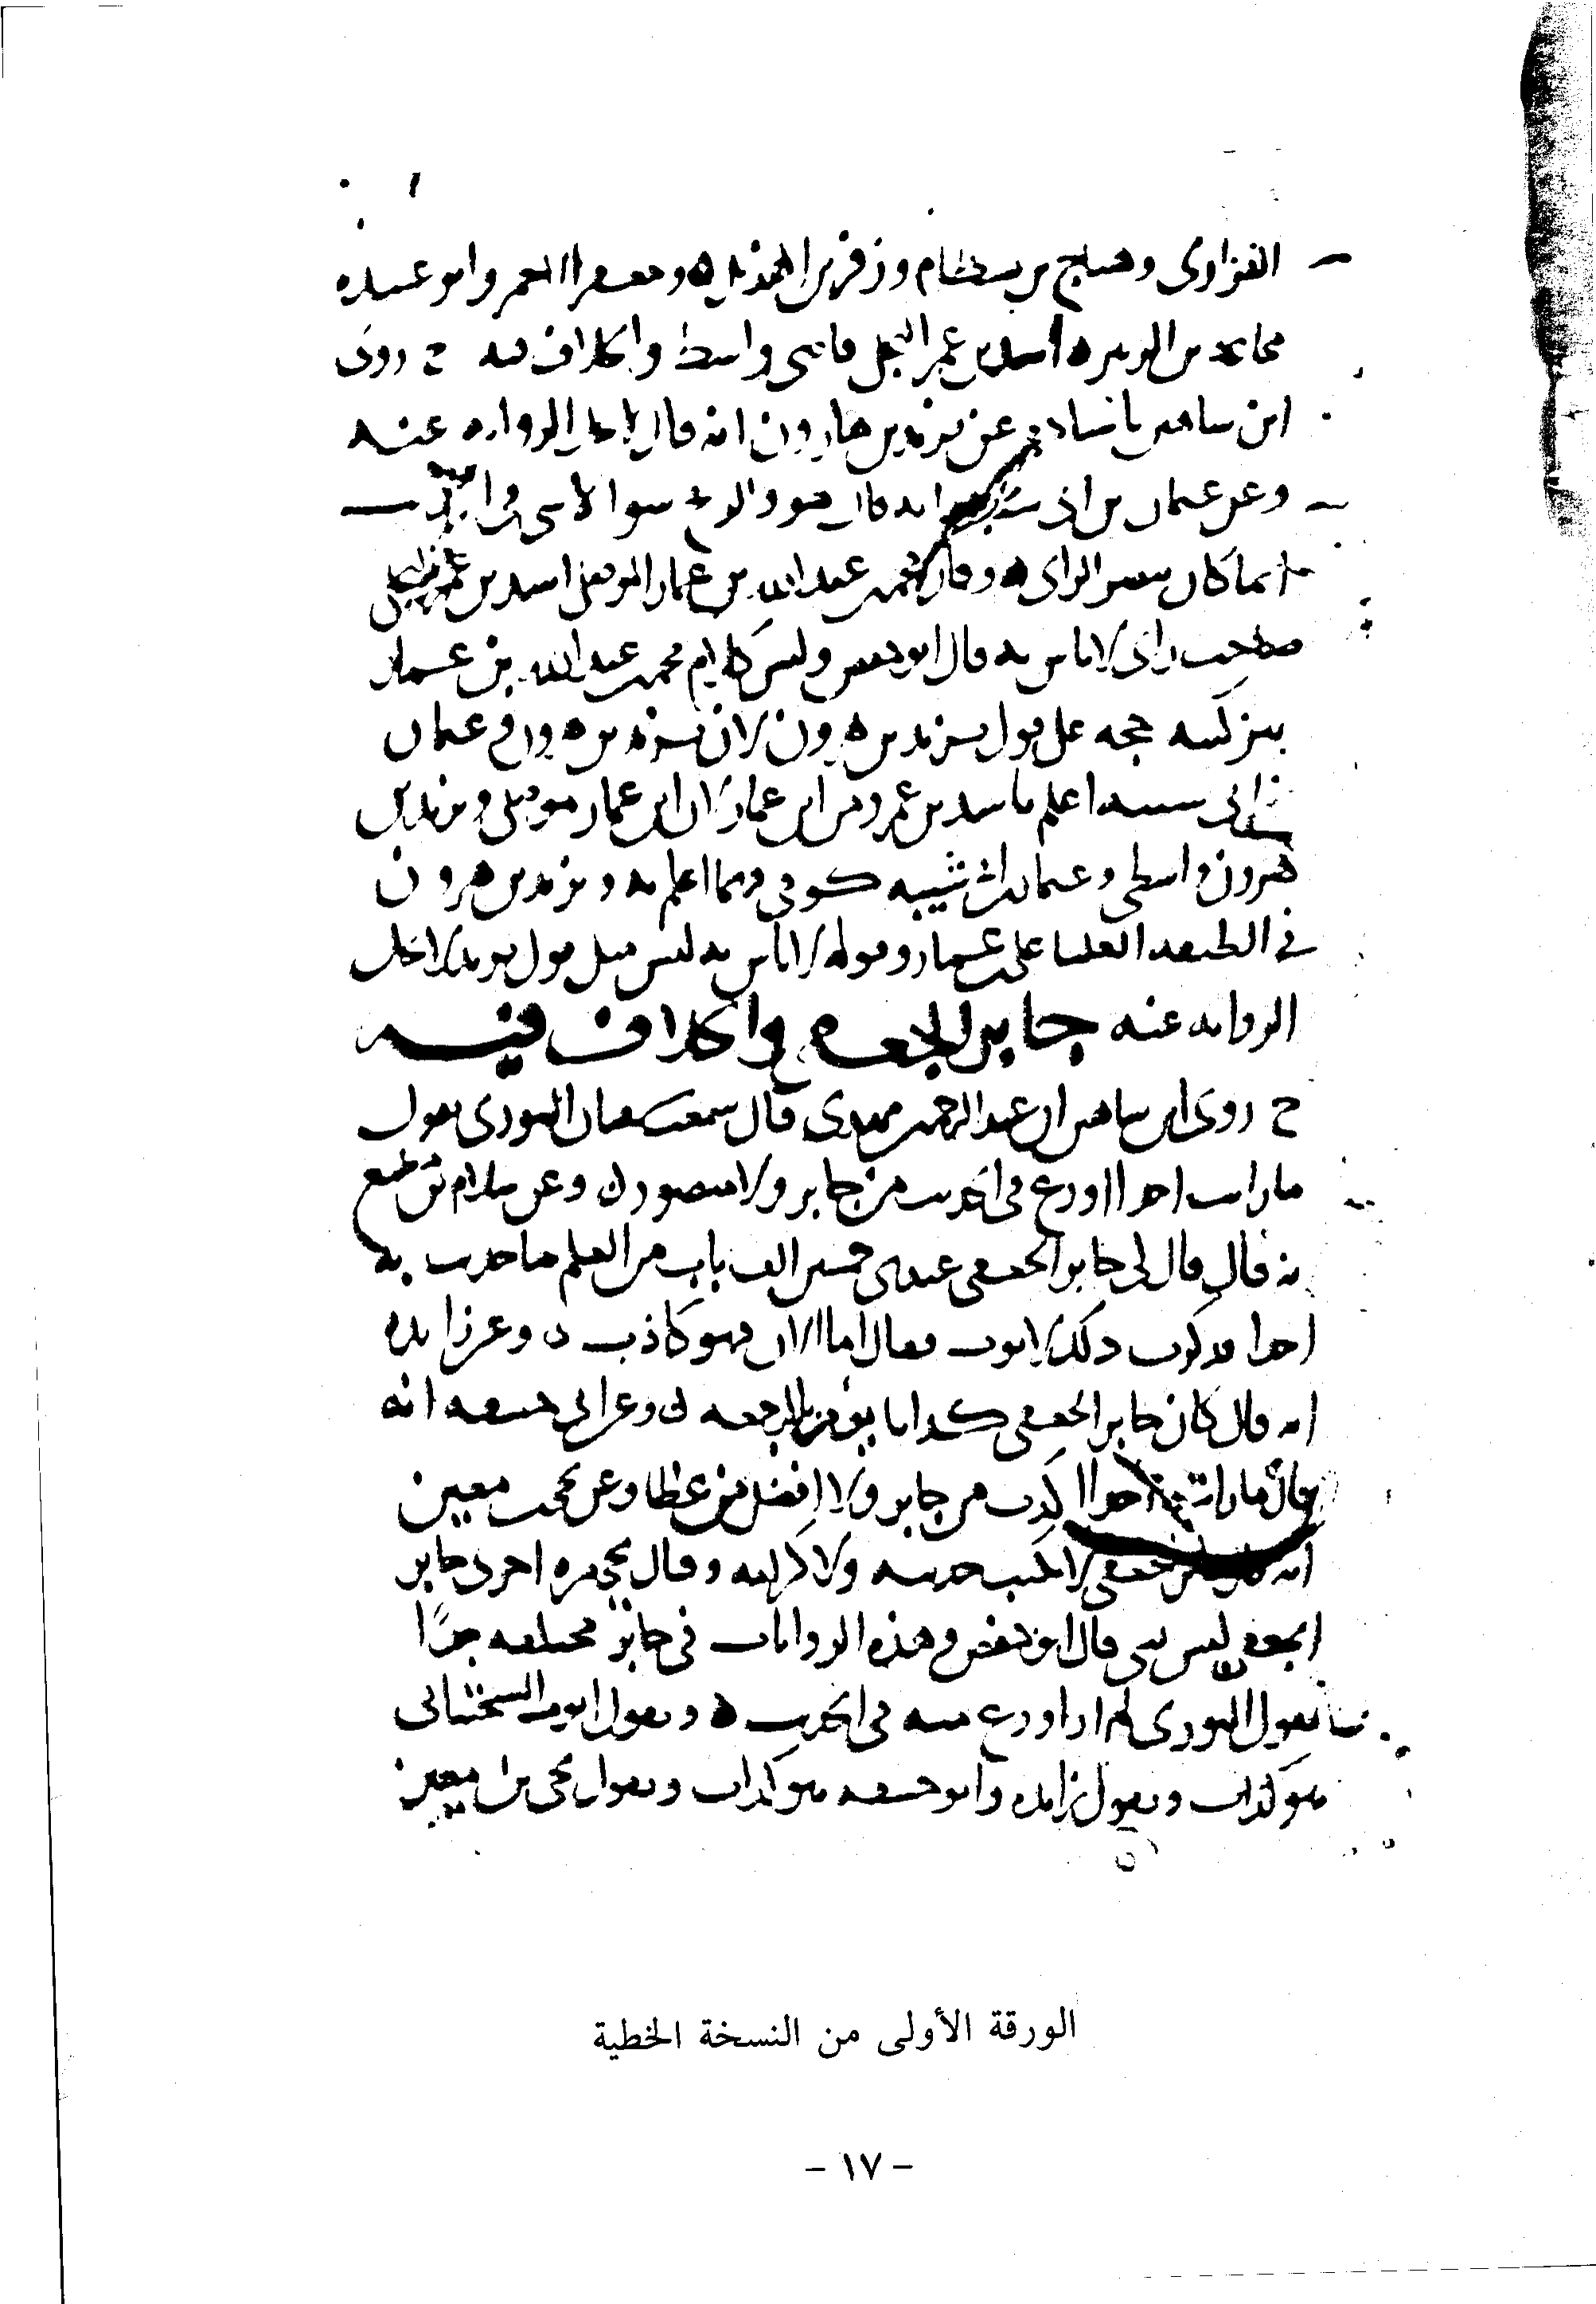 الفزارى وهياج بن بسطام وزفر بن الهذيل ومعمر وابو عبيده
مجاعه بن الزبير اسد بن عمر البجلى قاضى واسط والخلاف فيه ح روى
ابن شاهين باسناده عن يزيد بن هارون انه قال لا يحل الروايه عنه
وعن عثمان بن ابى شيبه انه قال هو والريح سوا لا شى فى
انما كان يبصر الراى وقال محمد بن عبد الله بن عمار الموصلى اسد بن عمرو
صاحب راى لا باس به قال ابو حفص وليس كلام محمد بن عبد الله بن عمار
بتزكيته حجه على قول يزيد بن هرون لان يزيد بن هرون وعثمان
بن ابى شيبه اعلم باسد بن عمرو من ابن عمار لان ابن عمار موصلى ويزيد بن
هرون واسطى وعثمان بن ابى شيبه كوفى وهما اعلم به ويزيد بن هرون
فى الطبقه العليا على بن عمار وقوله لا باس به ليس مثل قول يزيد لا تحل
الروايه عنه جابر الجعفى والخلاف فيه
ح روى ابن شاهين ان عبد الرحمن بن مهدى قال سمعت سفيان الثورى يقول
ما رايت احدا اورع فى الحديث من جابر ولا منصور وعن سلام بن ابى مطيع
انه قال قال لى جابر الجعفى عندى خمسين الف باب من العلم ما حدثت به
احدا فذكرت ذلك لايوب فقال اما الان فهو كاذب وعن زايده
انه قال كان جابر الجعفى كذابا يؤمن بالرجعه وعن ابى حنيفه انه
قال ما رايت احدا اكذب من جابر ولا افضل من عطا وعن يحيى بن معين
انه لا يكتب حديثه ولا كرامه وقال يحيى مره اخرى جابر
الجعفى ليس بشى قال ابو حفص وهذه الروايات فى جابر مختلفه جدًا
يقول الثورى لم ار اورع منه فى الحديث ويقول ايوب السختيانى
هو كذاب ويقول زايده وابو حنيفه هو كذاب ويقول يحيى بن معين
الورقة الأولى من النسخة الخطية
- ١٧ -